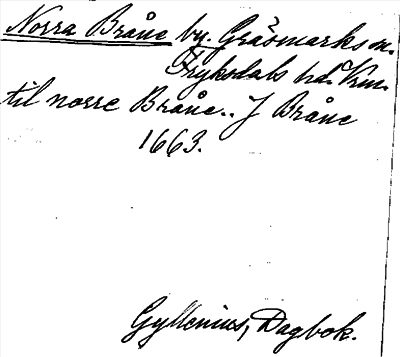 Norra Bråne by. Gräsmarks sn.
Fryksdals hd. Vrm.
til norre Bråne.. J Bråne
1663.
Gyllenius, Dagbok.